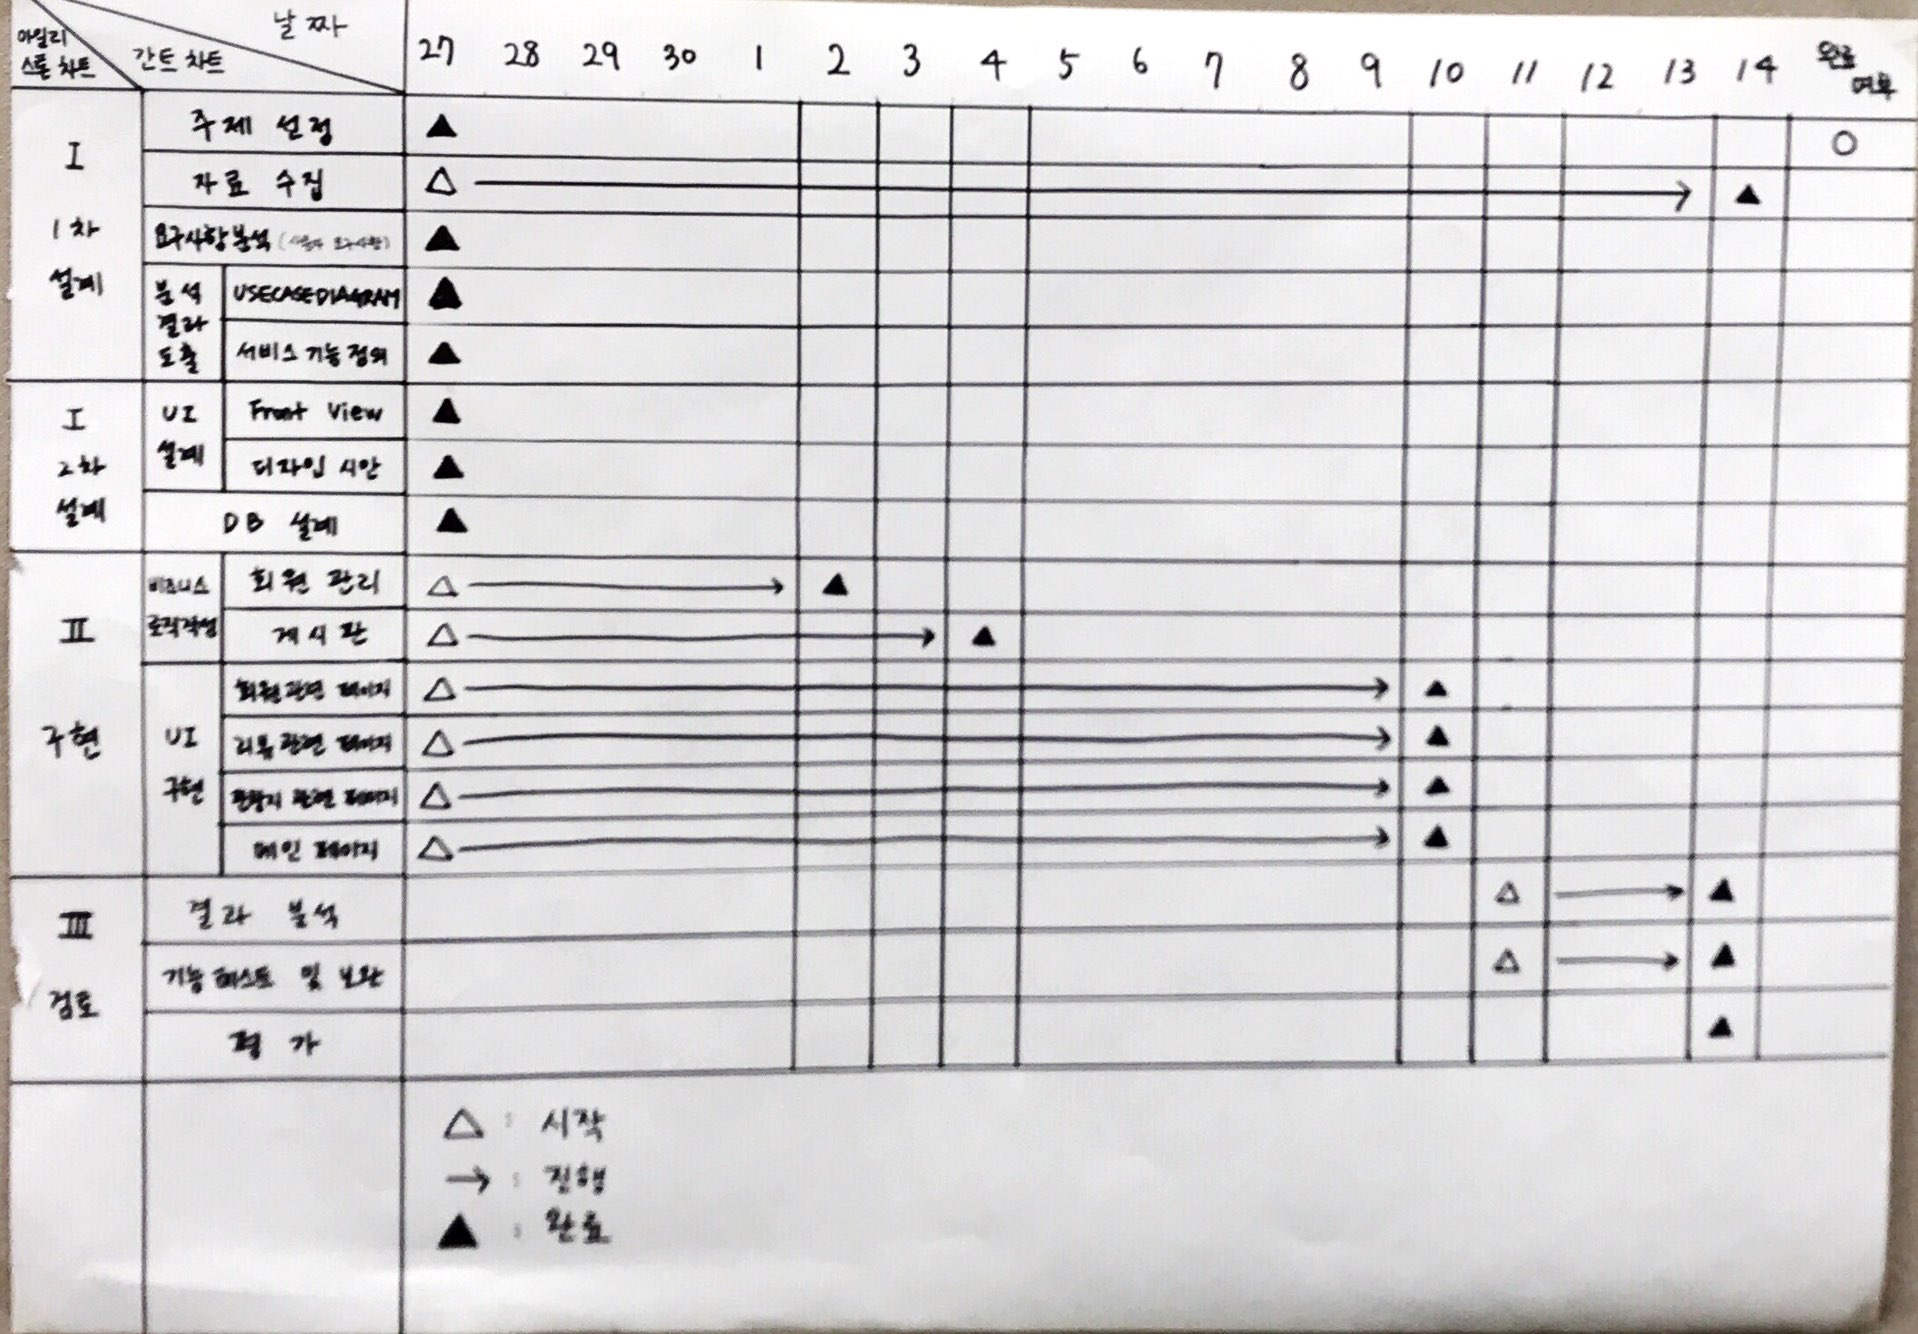 날짜
마일리
스톤 차트
간트 차트
27 28 29 30 1 2 3 4 5 6 7 8 9 10 11 12 13 14
완료
여부
I
1차
설계
주제 선정
자료 수집
요구사항 분석 (사용자 요구사항)
분석
결과
도출
USECASEDIAGRAM
서비스 기능 정의
I
2차
설계
UI
설계
Front View
디자인 시안
DB 설계
II
구현
비즈니스
로직작성
회원 관리
게시판
UI
구현
회원 관련 페이지
리뷰 관련 페이지
관광지 관련 페이지
메인 페이지
III
검토
결과 분석
기능 테스트 및 보완
평가
△ : 시작
→ : 진행
▲ : 완료